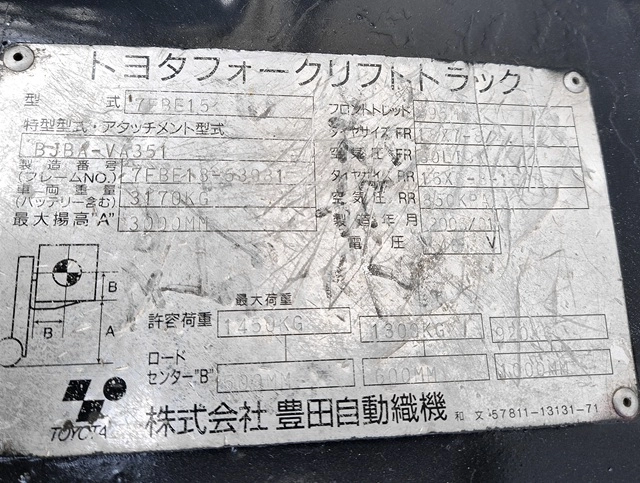 トヨタフォークリフトトラック
型 式 7FBE15
フロントトレッド
特型型式・アタッチメント型式
タイヤサイズ FR
BJBA-VA351
空気圧 FR
製造番号
(フレームNO.) 7FBE18-53031
タイヤサイズ RR
車両重量
(バッテリー含む) 3170KG
空気圧 RR 850KPA
最大揚高"A" 3000MM
製造年月
電圧 V
B
B
A
最大荷重
許容荷重 1450KG 1300KG 920KG
ロード
センター"B" 500MM 600MM 1000MM
TOYOTA
株式会社 豊田自動織機
和 文 57811-13131-71